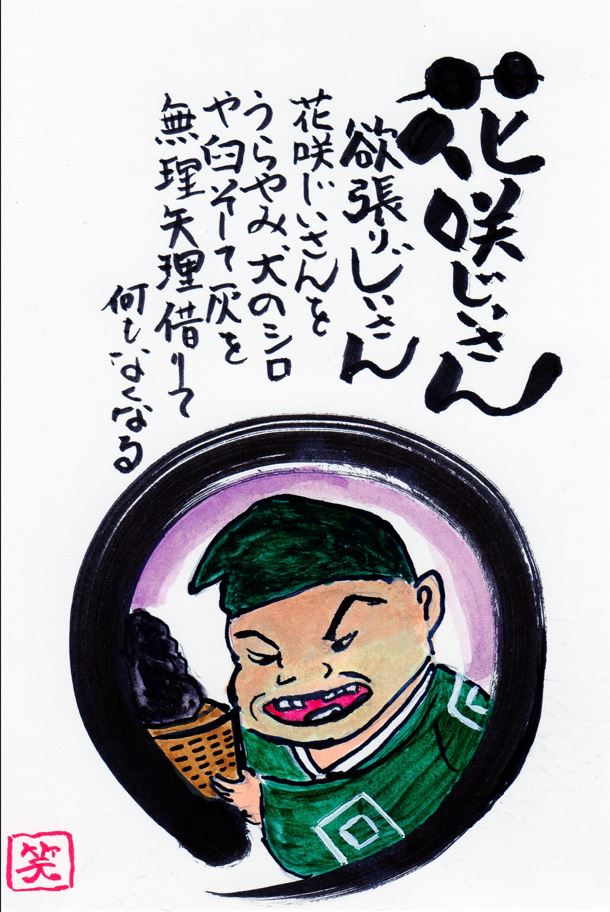 花咲じいさん
欲張りじいさん
花咲じいさんを
うらやみ、犬のシロ
や臼そして灰を
無理矢理借りて
何もなくなる
笑